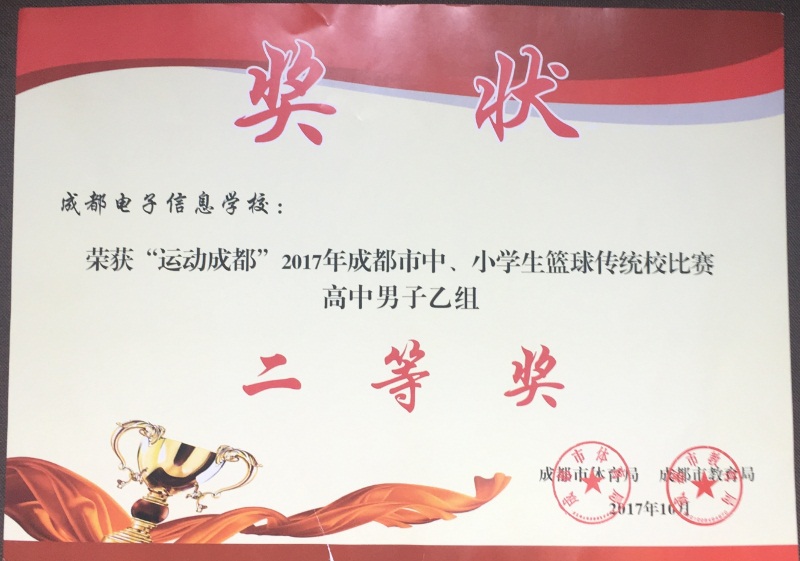 奖状
成都电子信息学校：
荣获“运动成都”2017年成都市中、小学生篮球传统校比赛
高中男子乙组
二等奖
成都市体育局 成都市教育局
2017年10月